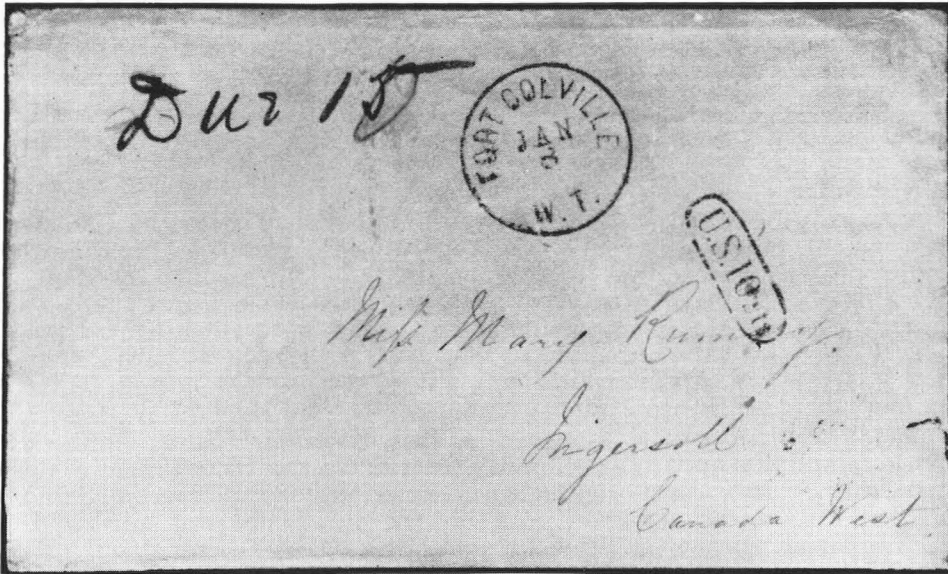 Due 15
FORT COLVILLE
JAN
W. T.
U.S. 10
Miss Mary
Ingersoll
Canada West